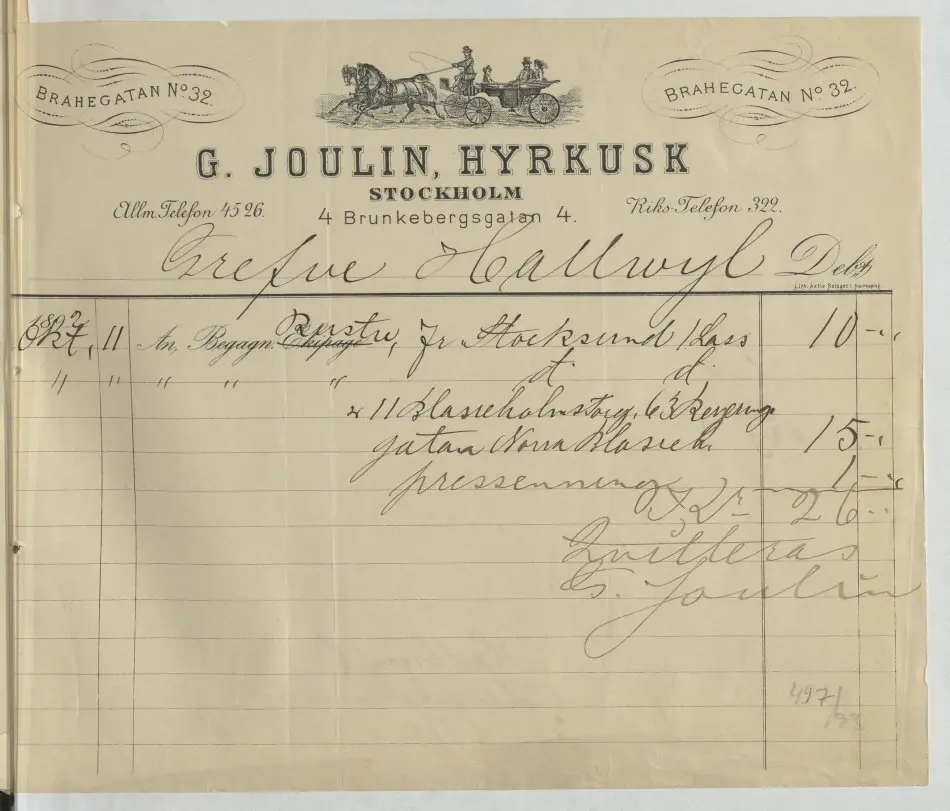 BRAHEGATAN No 32.
BRAHEGATAN No 32.
G. JOULIN, HYRKUSK
STOCKHOLM
Allm. Telefon 45 26.
4 Brunkebergsgatan 4.
Riks-Telefon 322.
Grefve Hallwyl Debet
Lith. Aktie Bolaget i Norrköping
1892
Okt, 11 An, Begagn. Ekipage, fr Stocksund 1 Lass 10 -,
" " " " " d. d.
11 Blasieholmstorg, 63 Regerings
gatan Norra Blasieh. 15 -,
pressenning 1 -,
Kr 26 -
Qvitteras
G. Joulin
497/
93